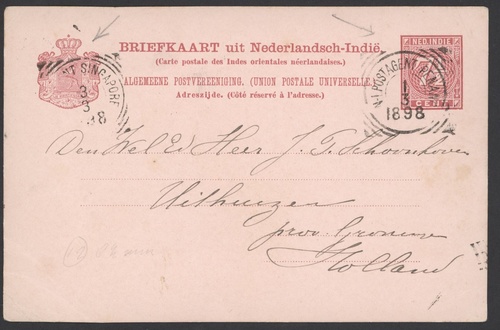 BRIEFKAART uit Nederlandsch-Indië.
(Carte postale des Indes orientales néerlandaises.)
ALGEMEENE POSTVEREENIGING, (UNION POSTALE UNIVERSELLE)
Adreszijde. (Côté réservé à l'adresse.)
NED. INDIE
CENT
NT SINGAPORE
3
3
98
N-I POSTAGENT
1
3
1898
Den Wel Ed Heer J. T. Schoonhoven
Uithuizen
prov. Groningen
Holland